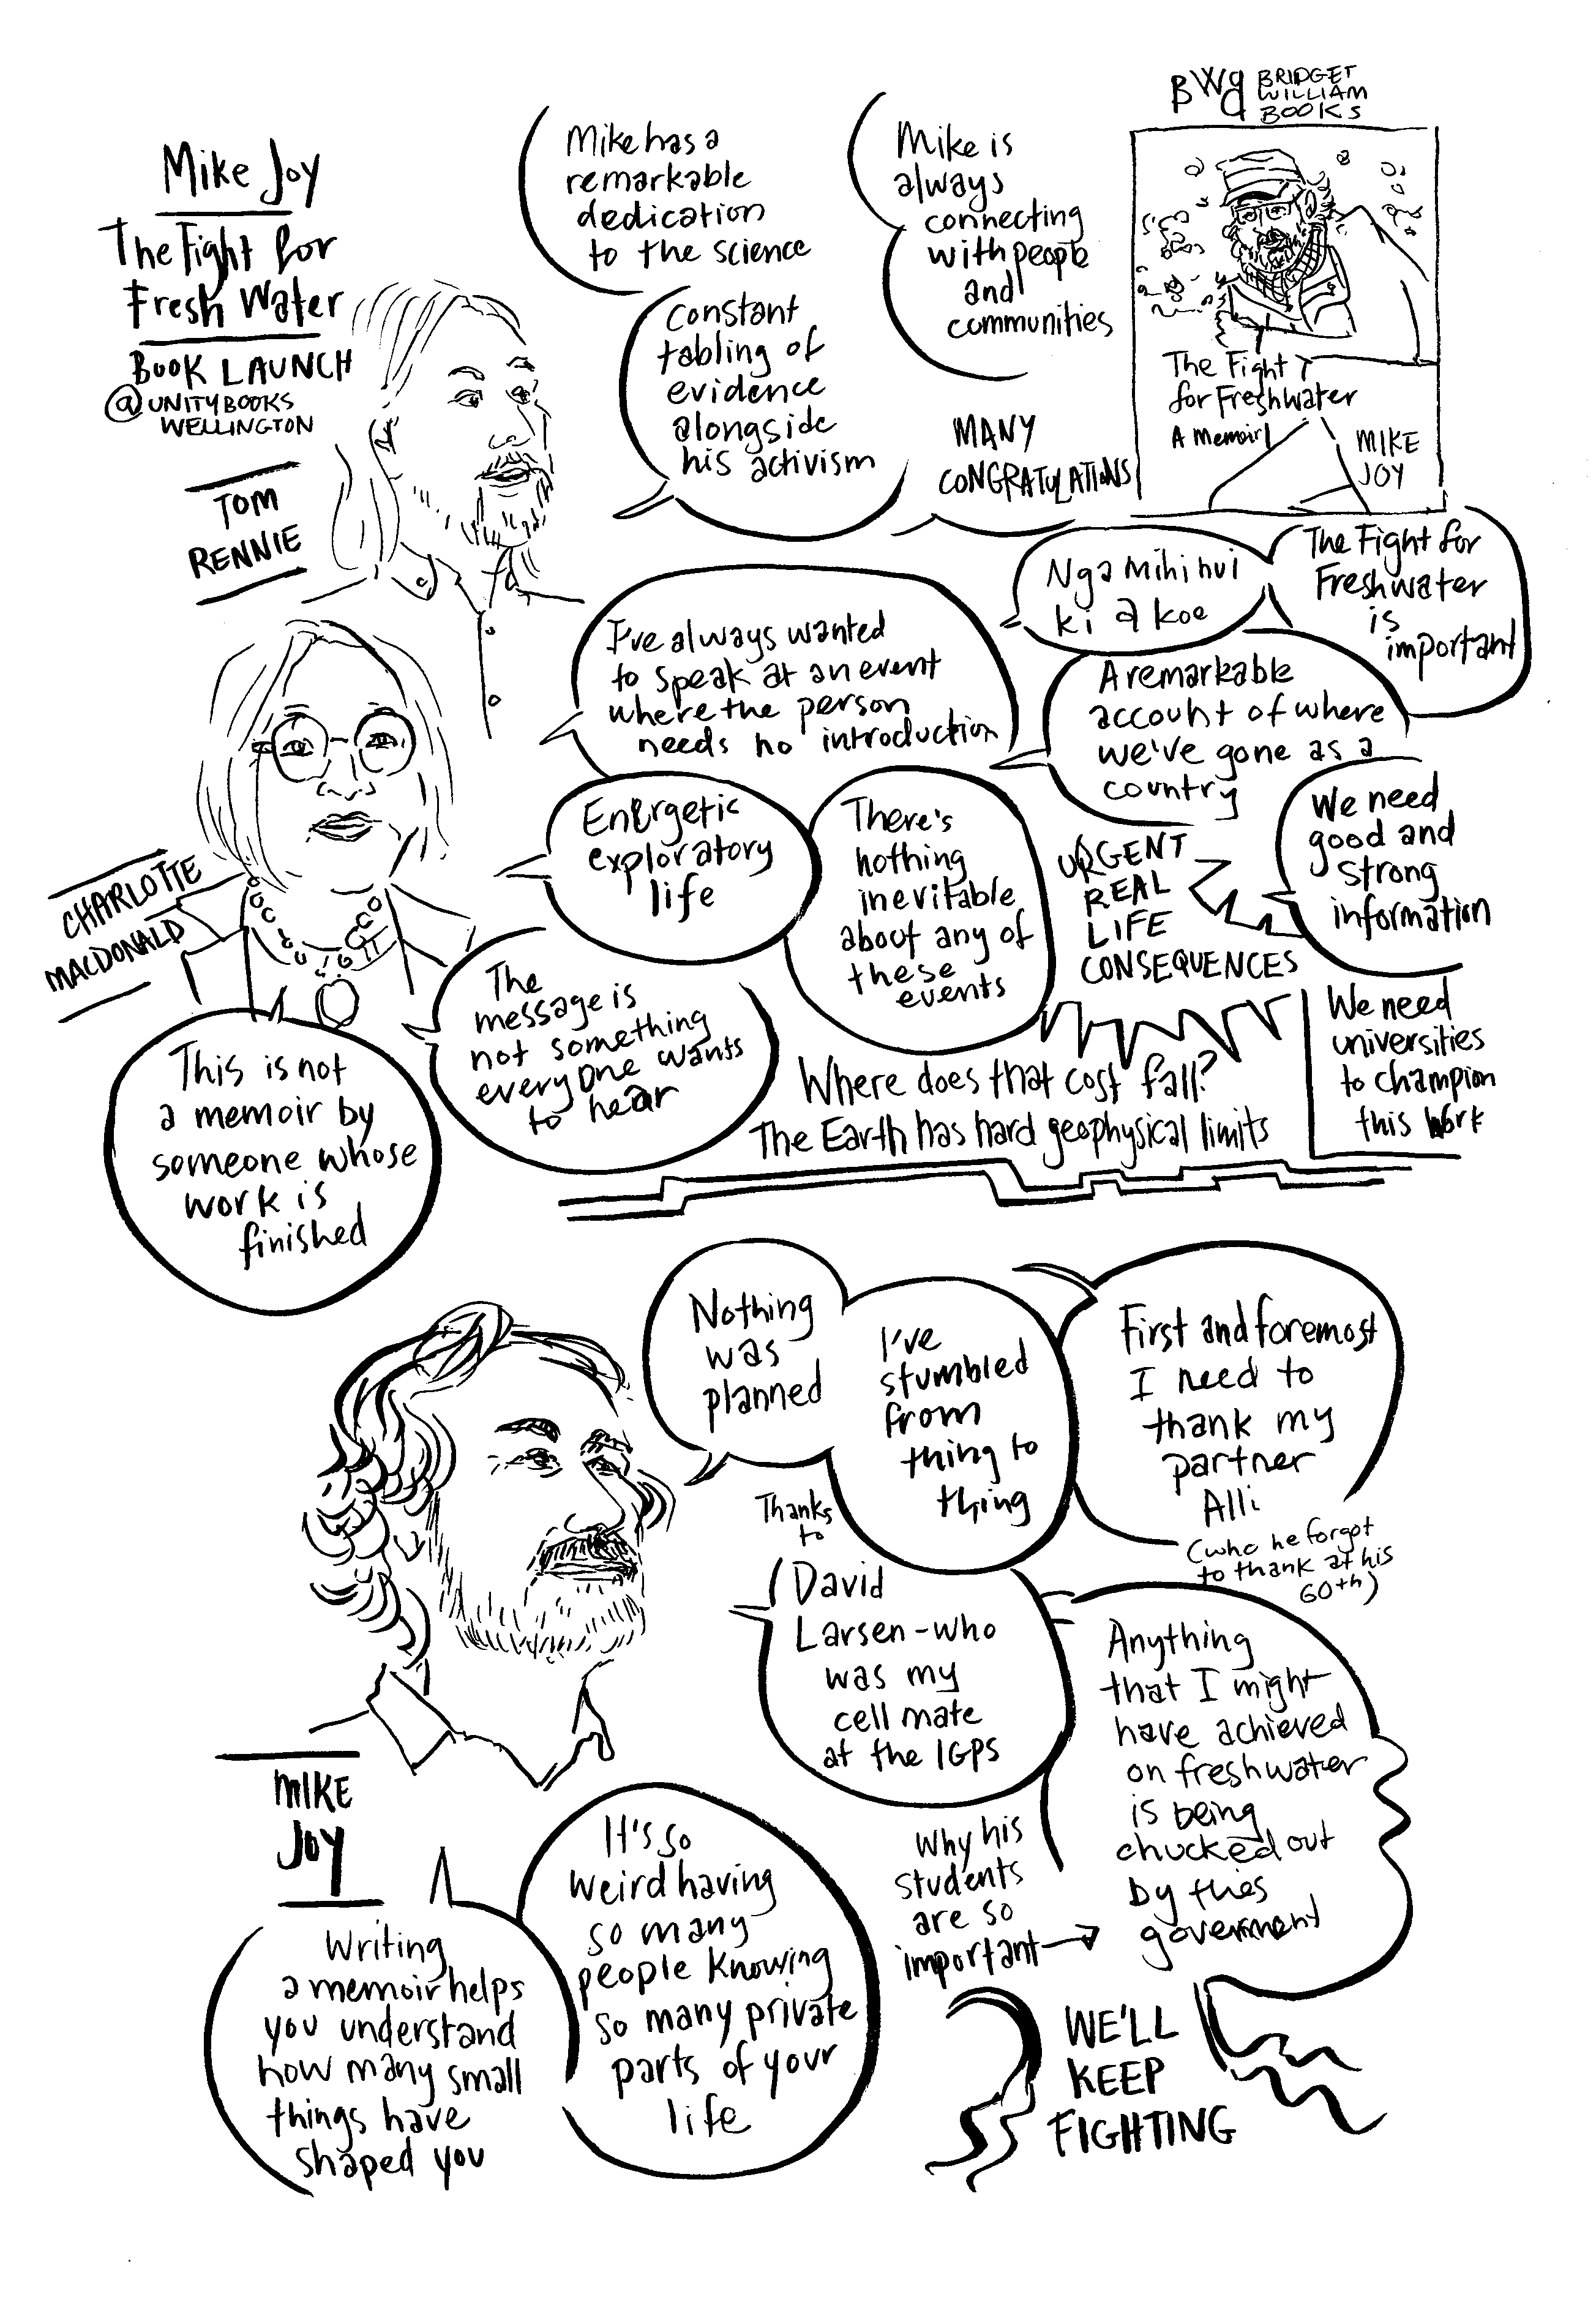 Mike Joy
The Fight for
Fresh Water
BOOK LAUNCH
@ UNITY BOOKS
WELLINGTON
TOM
RENNIE
Mike has a
remarkable
dedication
to the science
Constant
tabling of
evidence
alongside
his activism
Mike is
always
connecting
with people
and
communities
MANY
CONGRATULATIONS
BWB BRIDGET
WILLIAM
BOOKS
The Fight
for Freshwater
A Memoir
MIKE
JOY
CHARLOTTE
MACDONALD
I've always wanted
to speak at an event
where the person
needs no introduction
Nga mihi nui
ki a koe
The Fight for
Freshwater
is
important
A remarkable
account of where
we've gone as a
country
Energetic
exploratory
life
There's
nothing
inevitable
about any of
these
events
URGENT
REAL
LIFE
CONSEQUENCES
We need
good and
strong
information
We need
universities
to champion
this work
The
message is
not something
everyone wants
to hear
Where does that cost fall?
The Earth has hard geophysical limits
This is not
a memoir by
someone whose
work is
finished
Nothing
was
planned
I've
stumbled
from
thing to
thing
First and foremost
I need to
thank my
partner
Alli
(who he forgot
to thank at his
60th)
Thanks
to
David
Larsen - who
was my
cell mate
at the IGPS
Anything
that I might
have achieved
on freshwater
is being
chucked out
by this
government
MIKE
JOY
Writing
a memoir helps
you understand
how many small
things have
shaped you
It's so
weird having
so many
people knowing
so many private
parts of your
life
Why his
students
are so
important
WE'LL
KEEP
FIGHTING